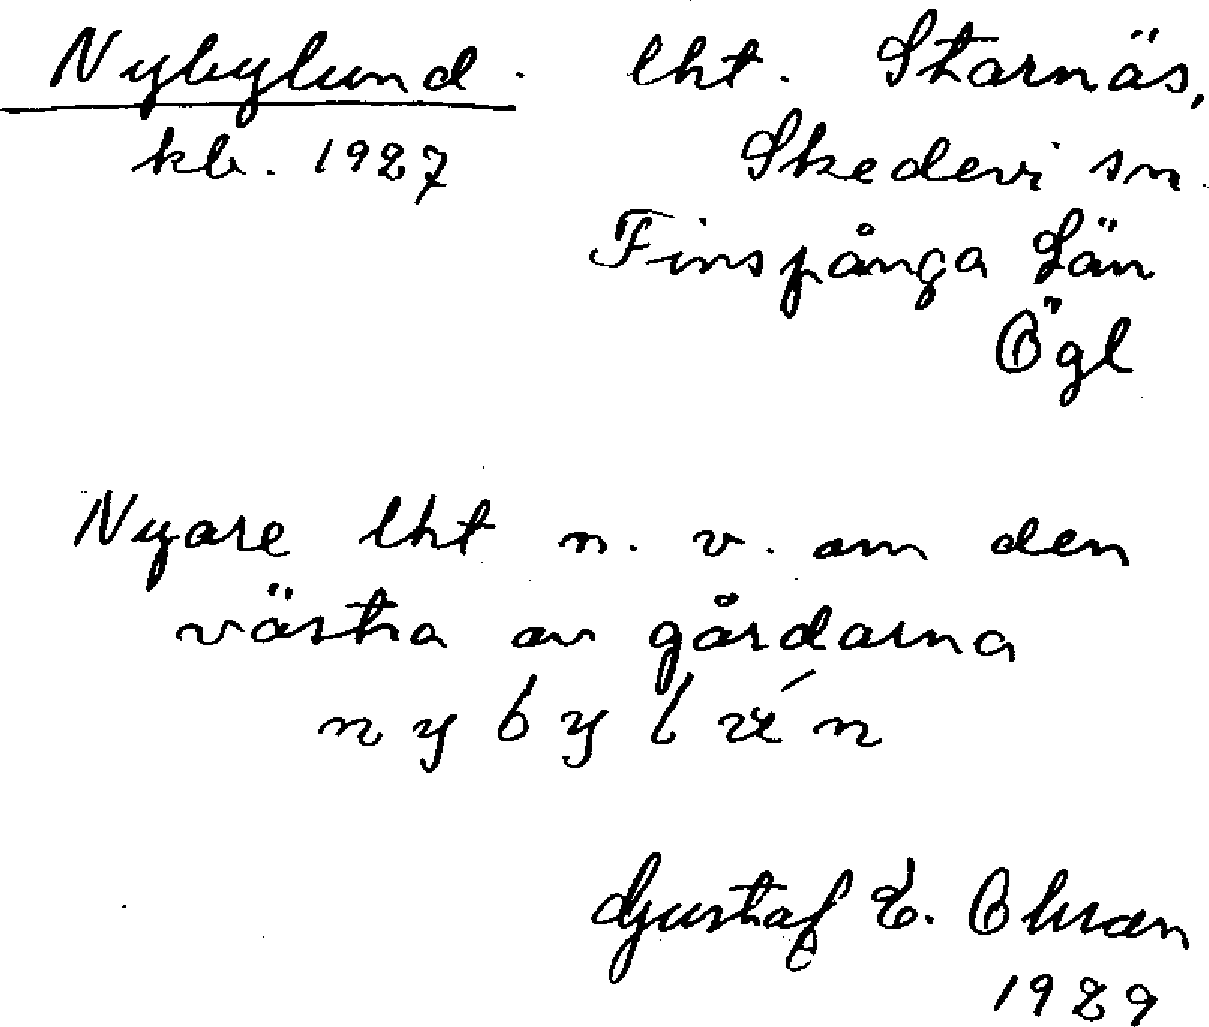 Nybylund. lht. Starnäs,
kb. 1927 Skedevi sn.
Finspånga Län
Ögl
Nyare lht n. v. om den
västra av gårdarna
nybyl n
Gustaf E. Olsson
1929